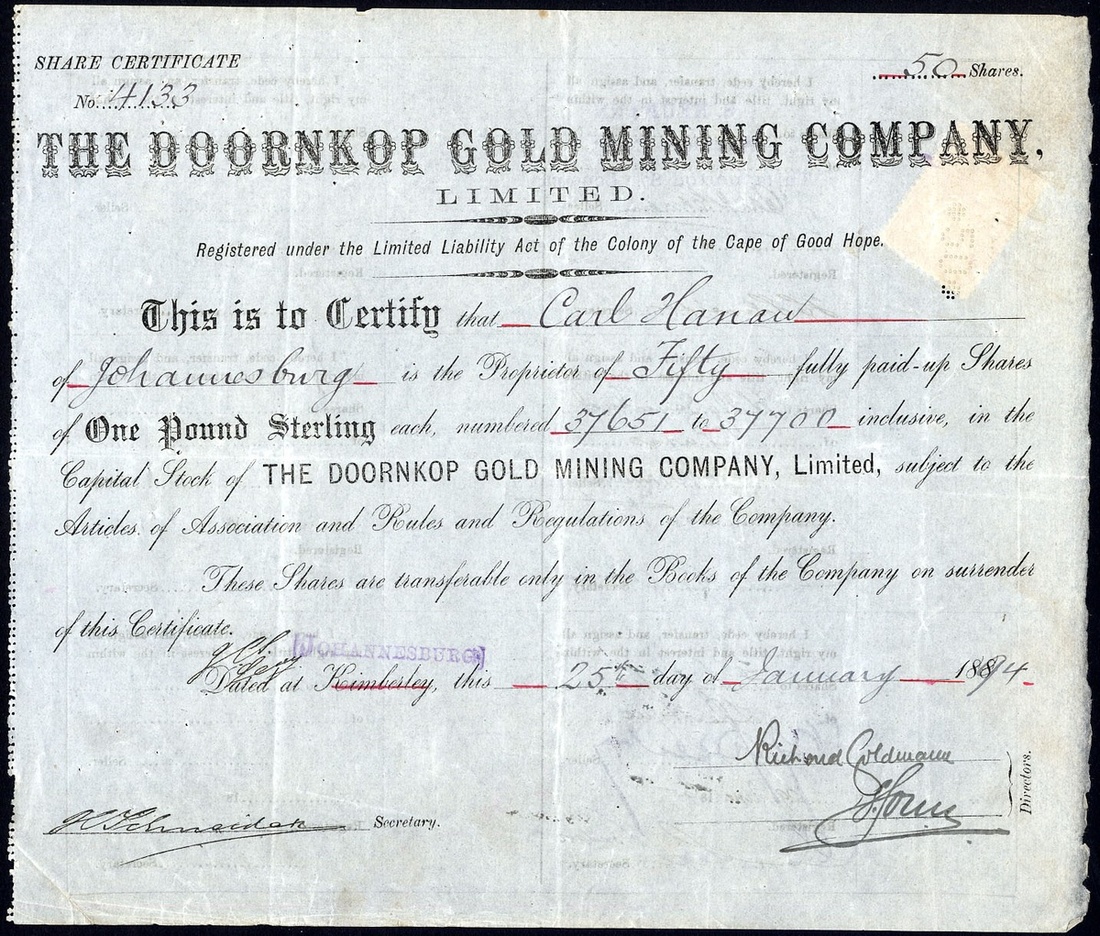 SHARE CERTIFICATE
50 Shares.
No. 4133
THE DOORNKOP GOLD MINING COMPANY,
LIMITED.
Registered under the Limited Liability Act of the Colony of the Cape of Good Hope.
This is to Certify that Carl Hanau
of Johannesburg is the Proprietor of Fifty fully paid-up Shares
of One Pound Sterling each, numbered 37651 to 37700 inclusive, in the
Capital Stock of THE DOORNKOP GOLD MINING COMPANY, Limited, subject to the
Articles of Association and Rules and Regulations of the Company.
These Shares are transferable only in the Books of the Company on surrender
of this Certificate.
JOHANNESBURG
Dated at Kimberley, this 25th day of January 1894
Richard Goldmann
Directors.
Schneider Secretary.